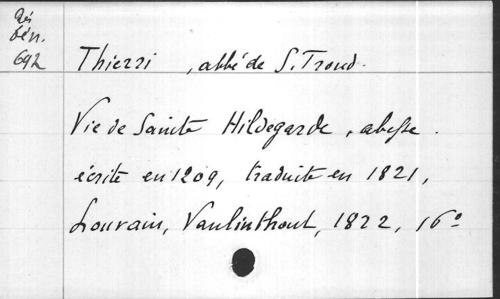 Rés
bén.
692
Thierri , abbé de S. Trond.
Vie de Sainte Hildegarde, abesse.
écrite en 1209, traduite en 1821,
Louvain, Vanlinthout, 1822, 16°